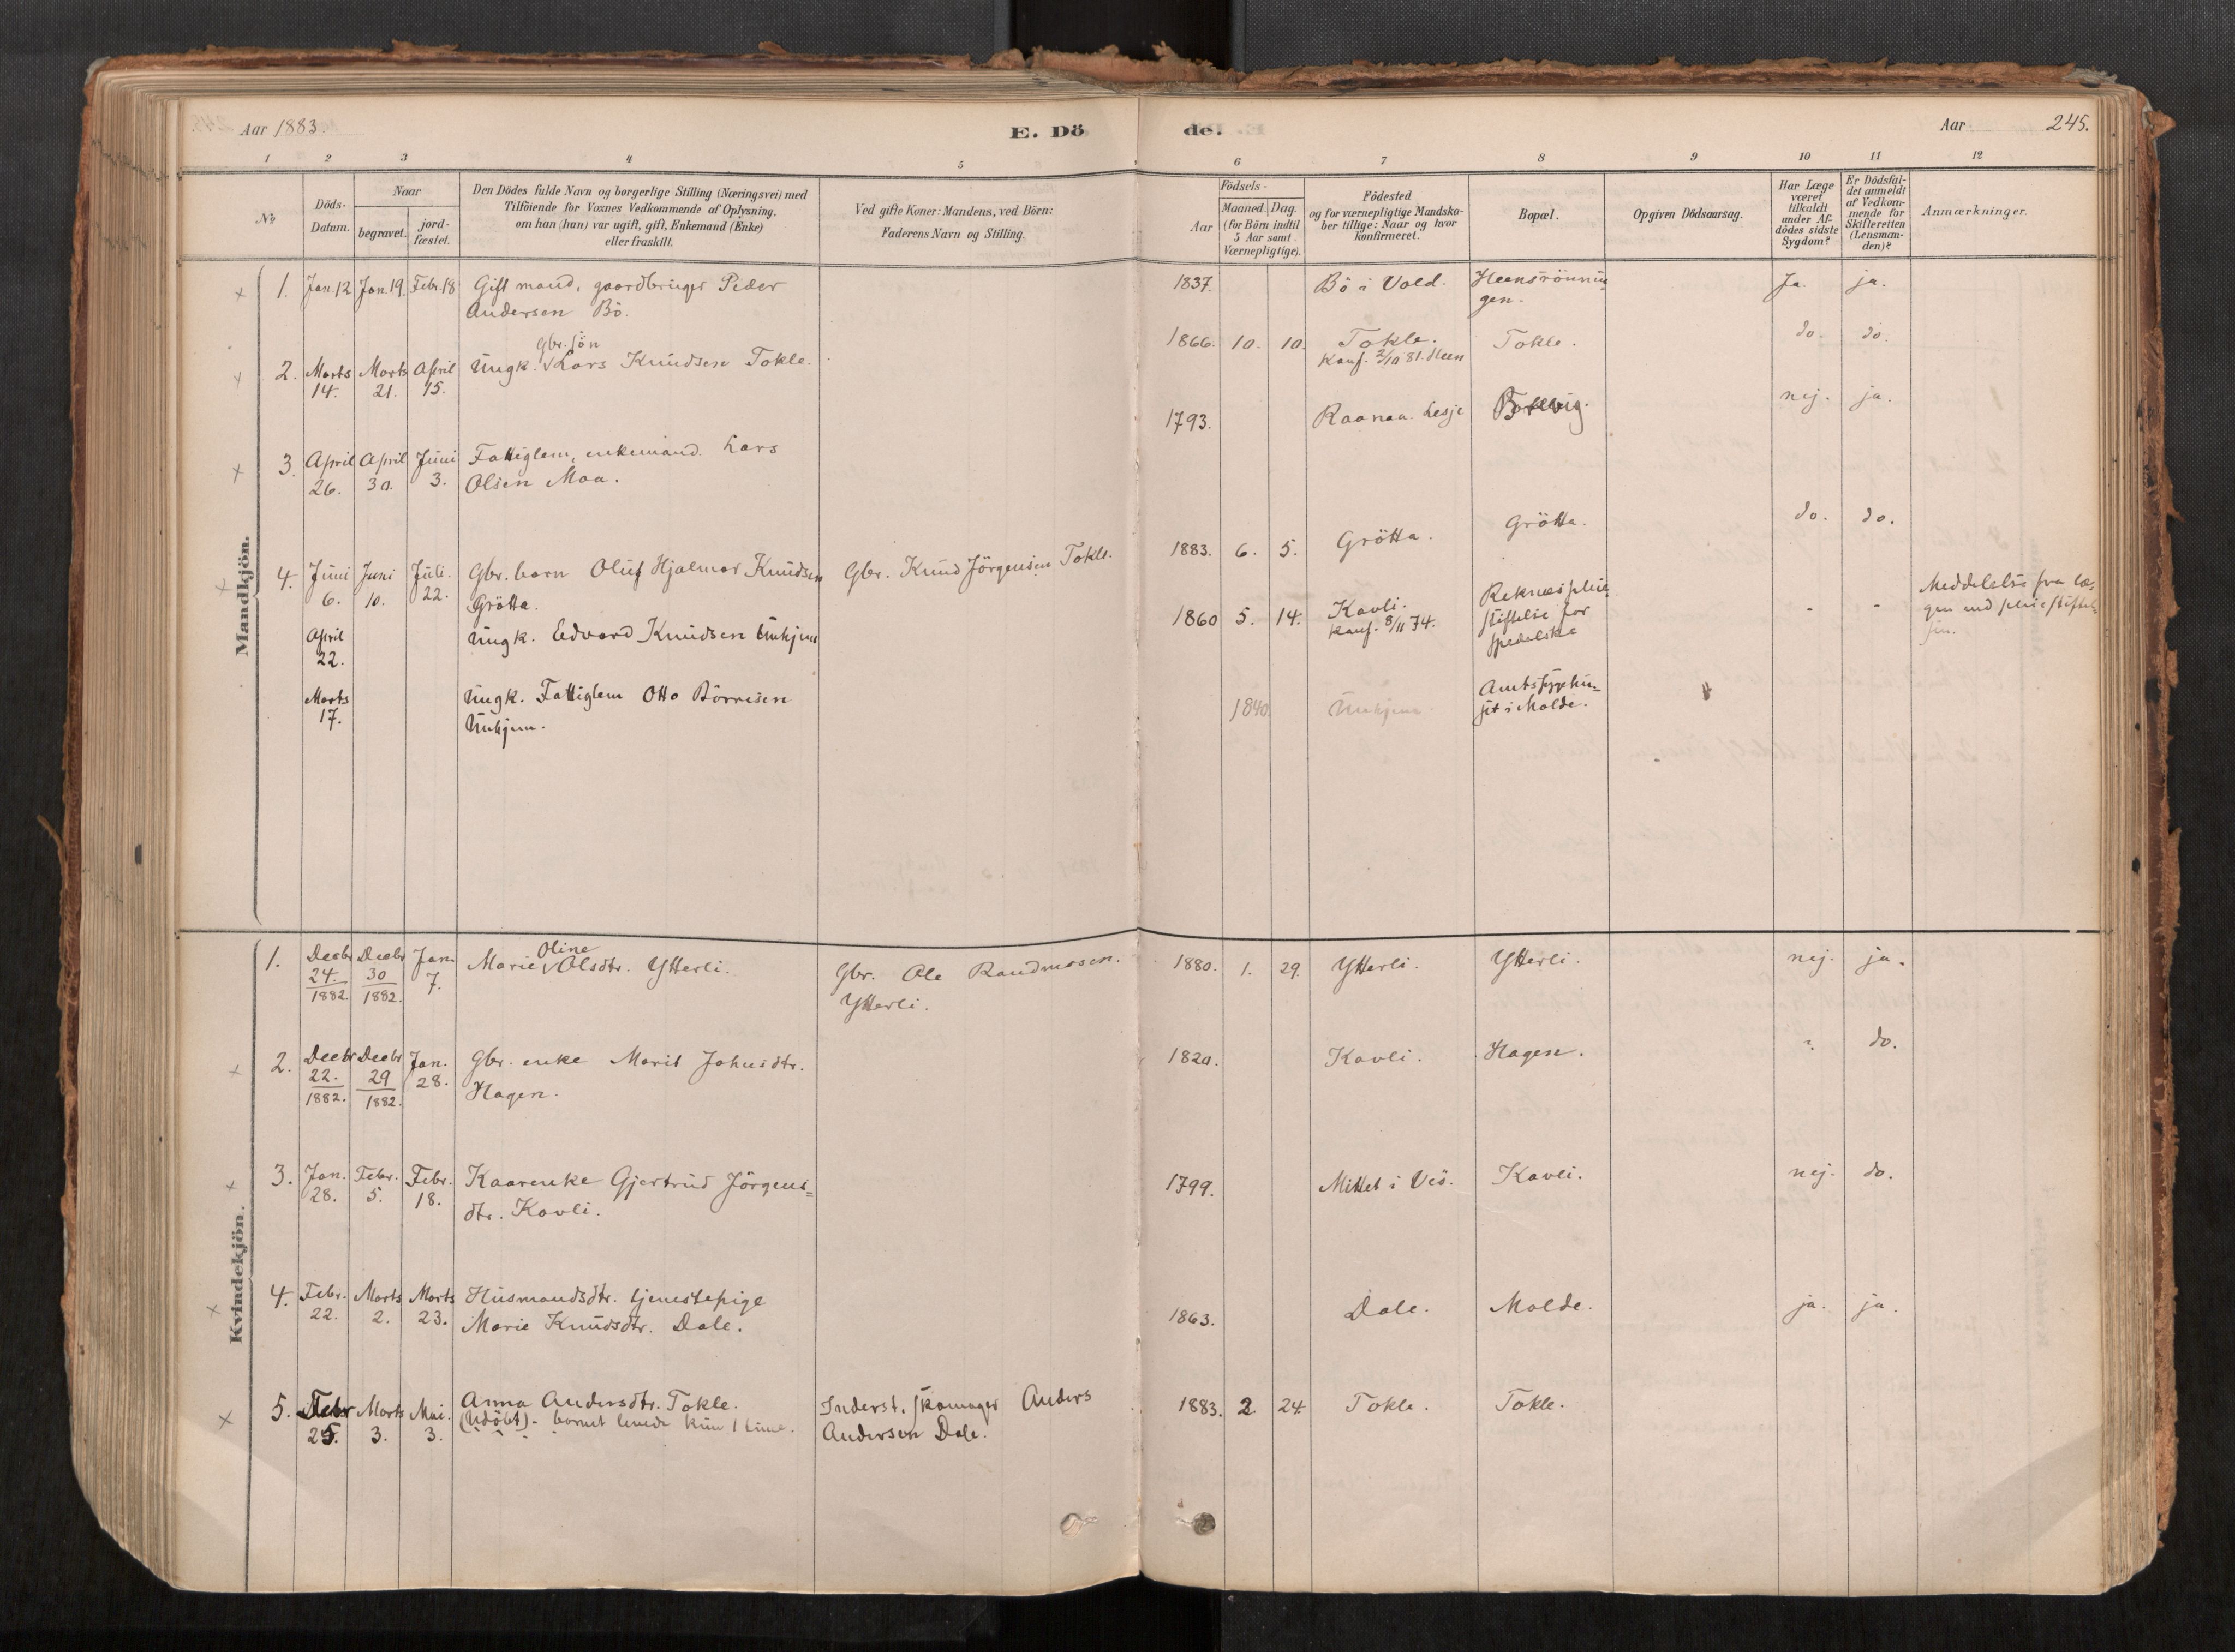 Aar 1883.
E. Dö
de.
Aar
245.
1 2 3 4 5 6 7 8 9 10 11 12
No
Döds-
Datum.
Naar
begravet.
jord-
fæstet.
Den Dödes fulde Navn og borgerlige Stilling (Næringsvei) med
Tilföiende for Voxnes Vedkommende af Oplysning,
om han (hun) var ugift, gift, Enkemand (Enke)
eller fraskilt.
Ved gifte Koner: Mandens, ved Börn:
Faderens Navn og Stilling.
Födsels-
Aar
Maaned. Dag.
(for Börn indtil
5 Aar samt
Værnepligtige).
Födested
og for værnepligtige Mandska-
ber tillige: Naar og hvor
konfirmeret.
Bopæl.
Opgiven Dödsaarsag.
Har Læge
været
tilkaldt
under Af-
dödes sidste
Sygdom?
Er Dödsfal-
det anmeldt
af Vedkom-
mende for
Skifteretten
(Lensman-
den)?
Anmærkninger.
Mandkjön.
1. Jan. 12 Jan. 19. Febr. 18 Gift mand, gaardbruger Peder
Andersen Bö.
1837. Bö i Vold. Heensrönnin-
gen. Ja. ja.
Gbr. sön
2. Marts Marts April Ungk. Lars Knudsen Tokle.
14. 21. 15.
1866. 10. 10. Tokle. Tokle. do. do.
Konf. 2/10 81. Heen
3. April April Juni Fattiglem, enkemand. Lars
26. 30. 3. Olsen Moa.
1793. Raanaa. Lesje nej. ja.
4. Juni Juni Juli. Gbr. barn Oluf Hjalmar Knudsen Gbr. Knud Jörgensen Tokle.
6. 10. 22. Grötta.
1883. 6. 5. Grötta. Grötta. do. do.
April Ungk. Edvard Knudsen Unhjem
22.
1860 5. 14. Kavli. Reknæs pleie-
Konf. 8/11 74. stiftelse for
spedalske - - Meddelelse fra læ-
gen ved pleiestiftel-
sen.
Marts Ungk. Fattiglem Otto Börresen
17. Unhjem.
1840 Unhjem. Amtssygehu-
set i Molde.
Kvindekjön.
Oline
1. Decbr Decbr Jan. Marie Olsdtr. Ytterli. Gbr. Ole Raudmosen.
24. 30 7. Ytterli.
1882. 1882.
1880. 1. 29. Ytterli. Ytterli. nej. ja.
2. Decbr Decbr Jan. Gbr. enke Marit Johnsdtr.
22. 29 28. Hagen.
1882. 1882.
1820. Kavli. Hagen. do.
3. Jan. Febr. Febr. Kaarenke Gjertrud Jörgens=
28. 5. 18. dtr. Kavli.
1799. Mittet i Veö. Kavli. nej. do.
4. Febr. Marts Marts Husmandsdtr. tjenestepige
22. 2. 23. Marie Knudsdtr. Dale.
1863. Dale. Molde. ja. ja.
5. Febr Marts Mai. Anna Andersdtr. Tokle. Inderst, skomager Anders
25. 3. 3. (Udöbt) - barnet levede kun 1 time. Andersen Dale.
1883. 2. 24. Tokle. Tokle.